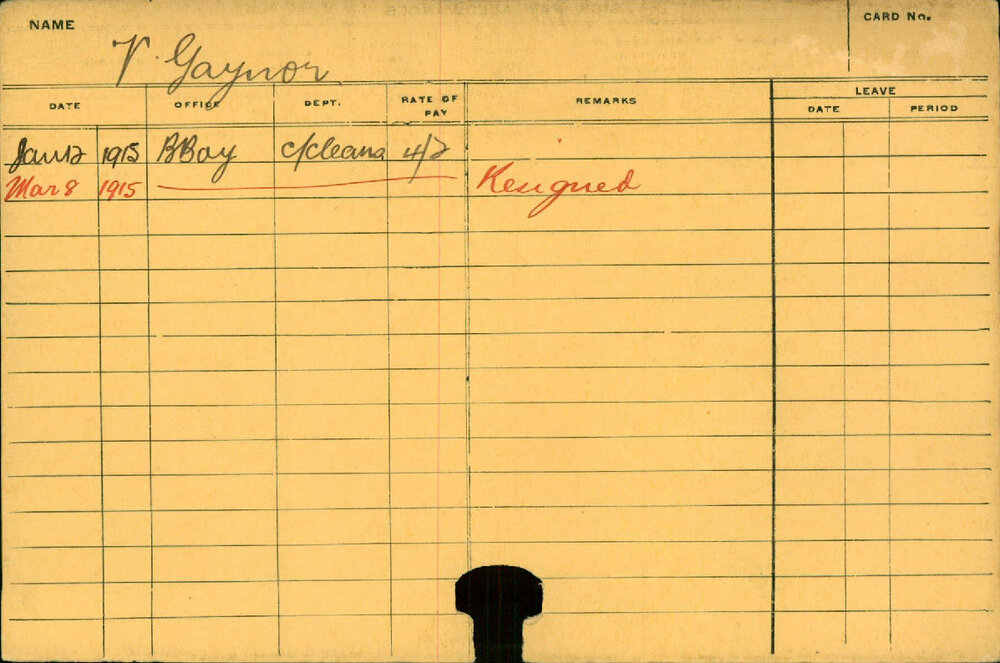 NAME
CARD No.
V Gaynor
DATE OFFICE DEPT. RATE OF PAY REMARKS LEAVE
DATE PERIOD
Jan 12 1915 BBay c/cleana 4/2
Mar 8 1915 Resigned